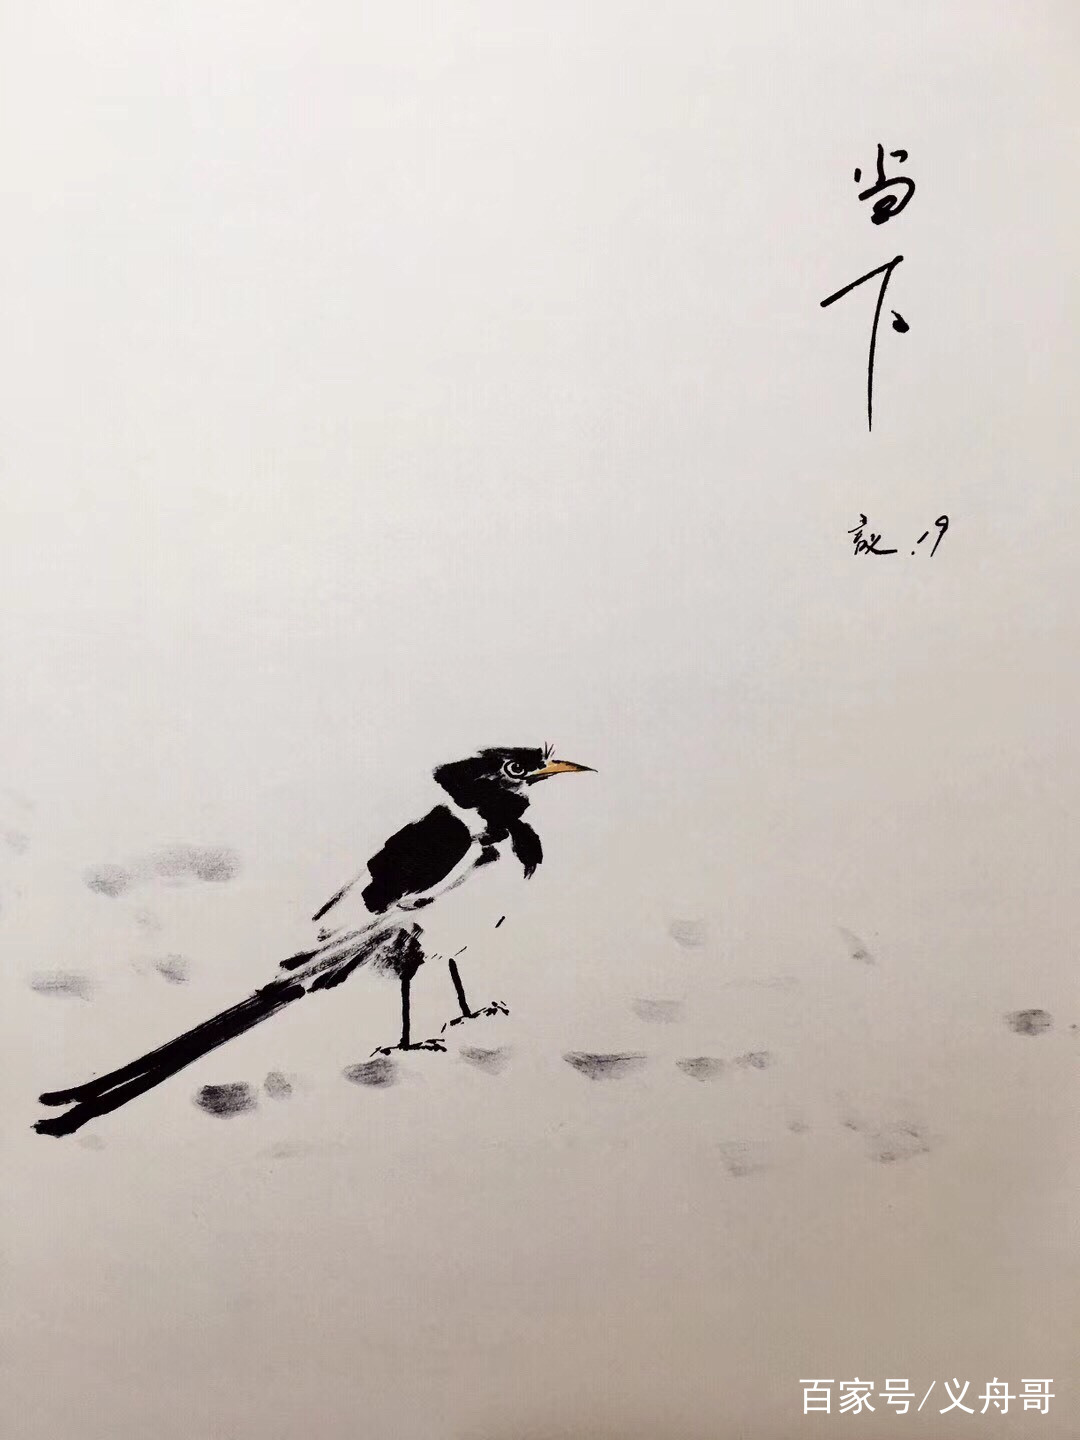 当
下
.19
百家号/义舟哥